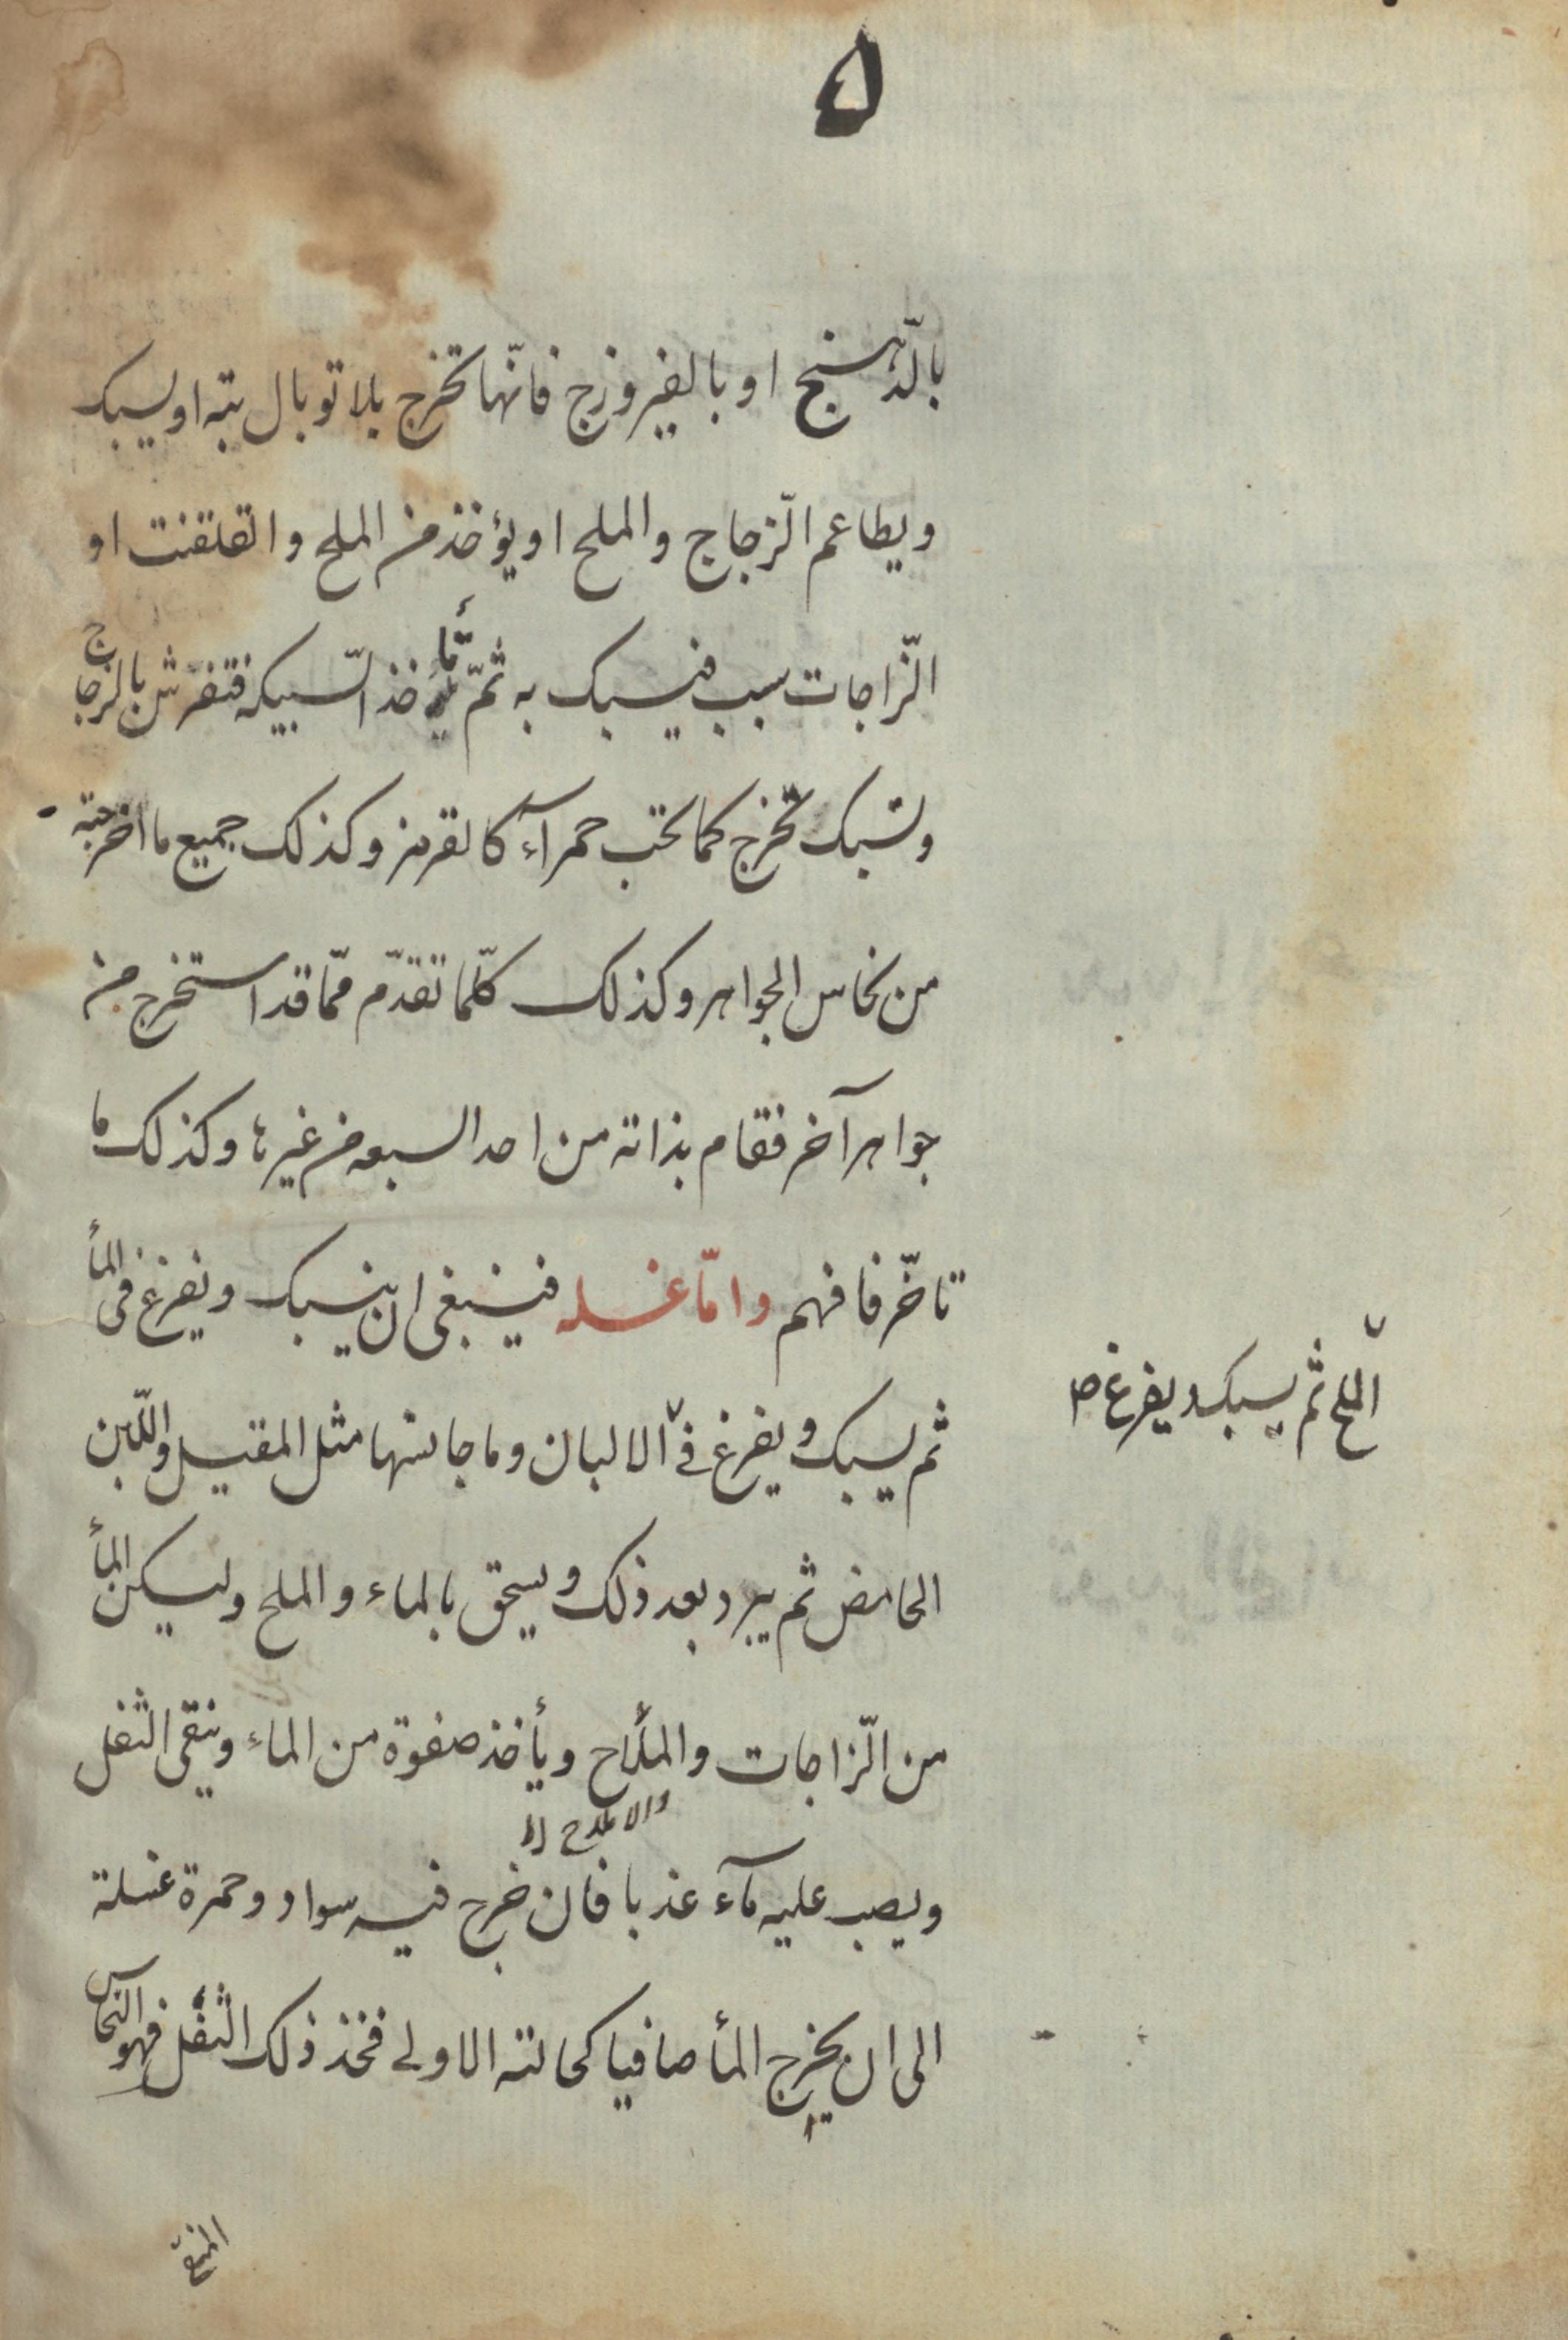 ۵
بالدّهنج او بالفيروزج فانّها تخرج بلا توبال بتة او يسبك
ويطاعم الزّجاج والملح او يؤخذ من الملح والقلقنت او
الزّاجات سبب فيسبك به ثمّ تأخذ السّبيكه فتفرّش بالزجاج
وتسبك تخرج كما تحب حمرآء كالقرمز وكذلك جميع ما اخرجته
من نحاس الجواهر وكذلك كلّما تقدّم ممّا قد استخرج من
جواهر آخر فقام بذاته من احد السبعه من غيرها وكذلك ما
تاخّر فافهم وامّا غسله فينبغى ان يسبك ويفرغ فى المأ
الملح ثم يسبك ويفرغ ص
ثم يسبك ويفرغ فى الالبان وما جانسها مثل المقيل واللّبن
الحامض ثم يبرد بعد ذلك ويسحق بالماء والملح وليكن المأ
من الزّاجات والملاح ويأخذ صفوة من الماء وينقى الثفل
والاملاح
ويصب عليه مآء عذبا فان خرج فيه سواد وحمرة غسلة
الى ان يخرج المأ صافيا كحالته الاولى فخذ ذلك الثفل فهو النحاس
المنقى